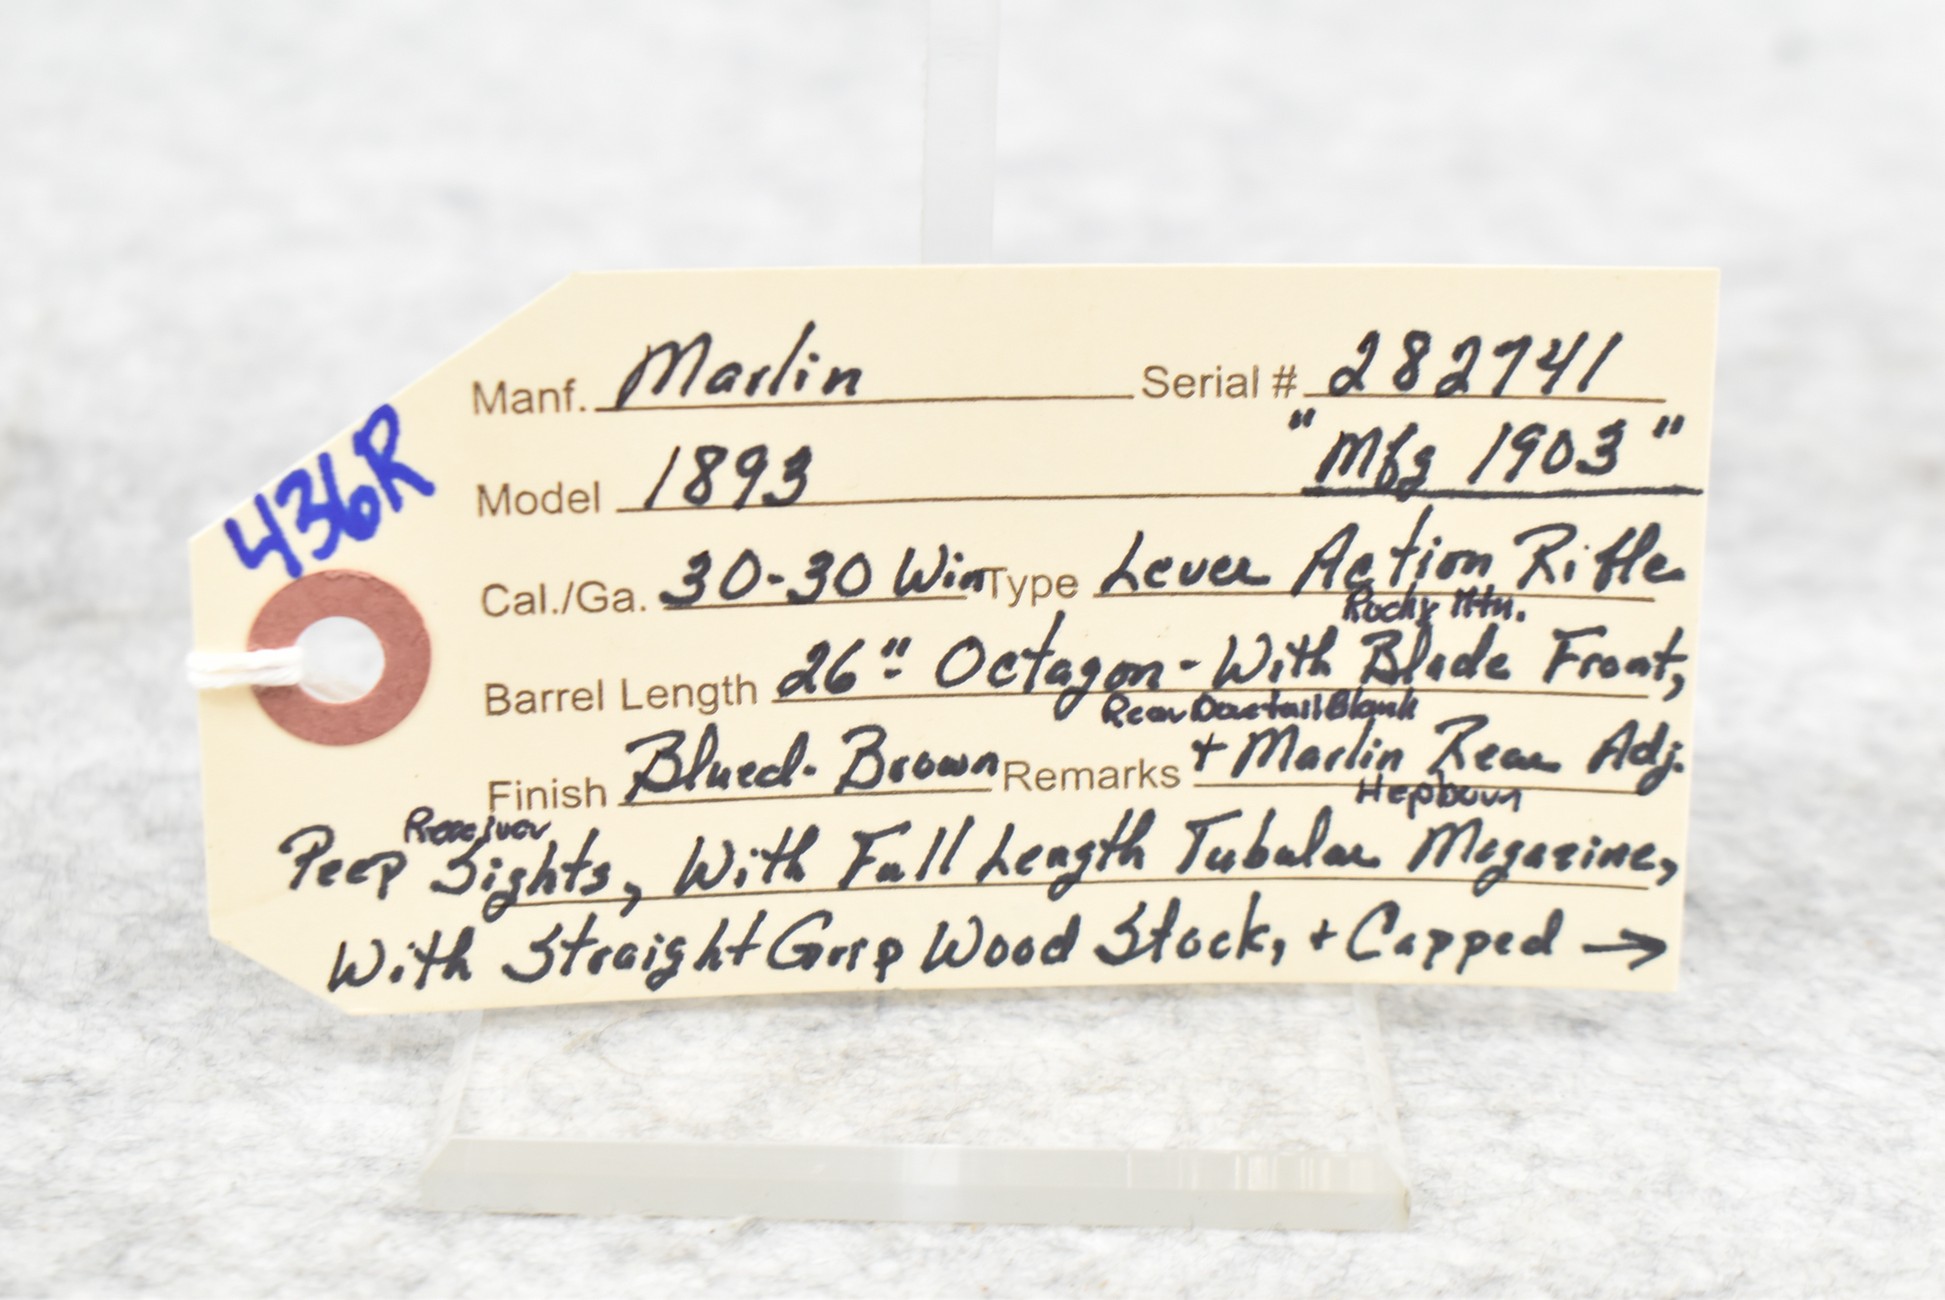 436R
Manf. Marlin Serial # 282741
Model 1893 "Mfg 1903"
Cal./Ga. 30-30 Win Type Lever Action Rifle
Rocky Mtn.
Barrel Length 26" Octagon - With Blade Front,
Rear Dovetail Blank
Finish Blued - Brown Remarks + Marlin Rear Adj.
Receiver Hepburn
Peep Sights, With Full Length Tubular Magazine,
With Straight Grip Wood Stock, + Capped →